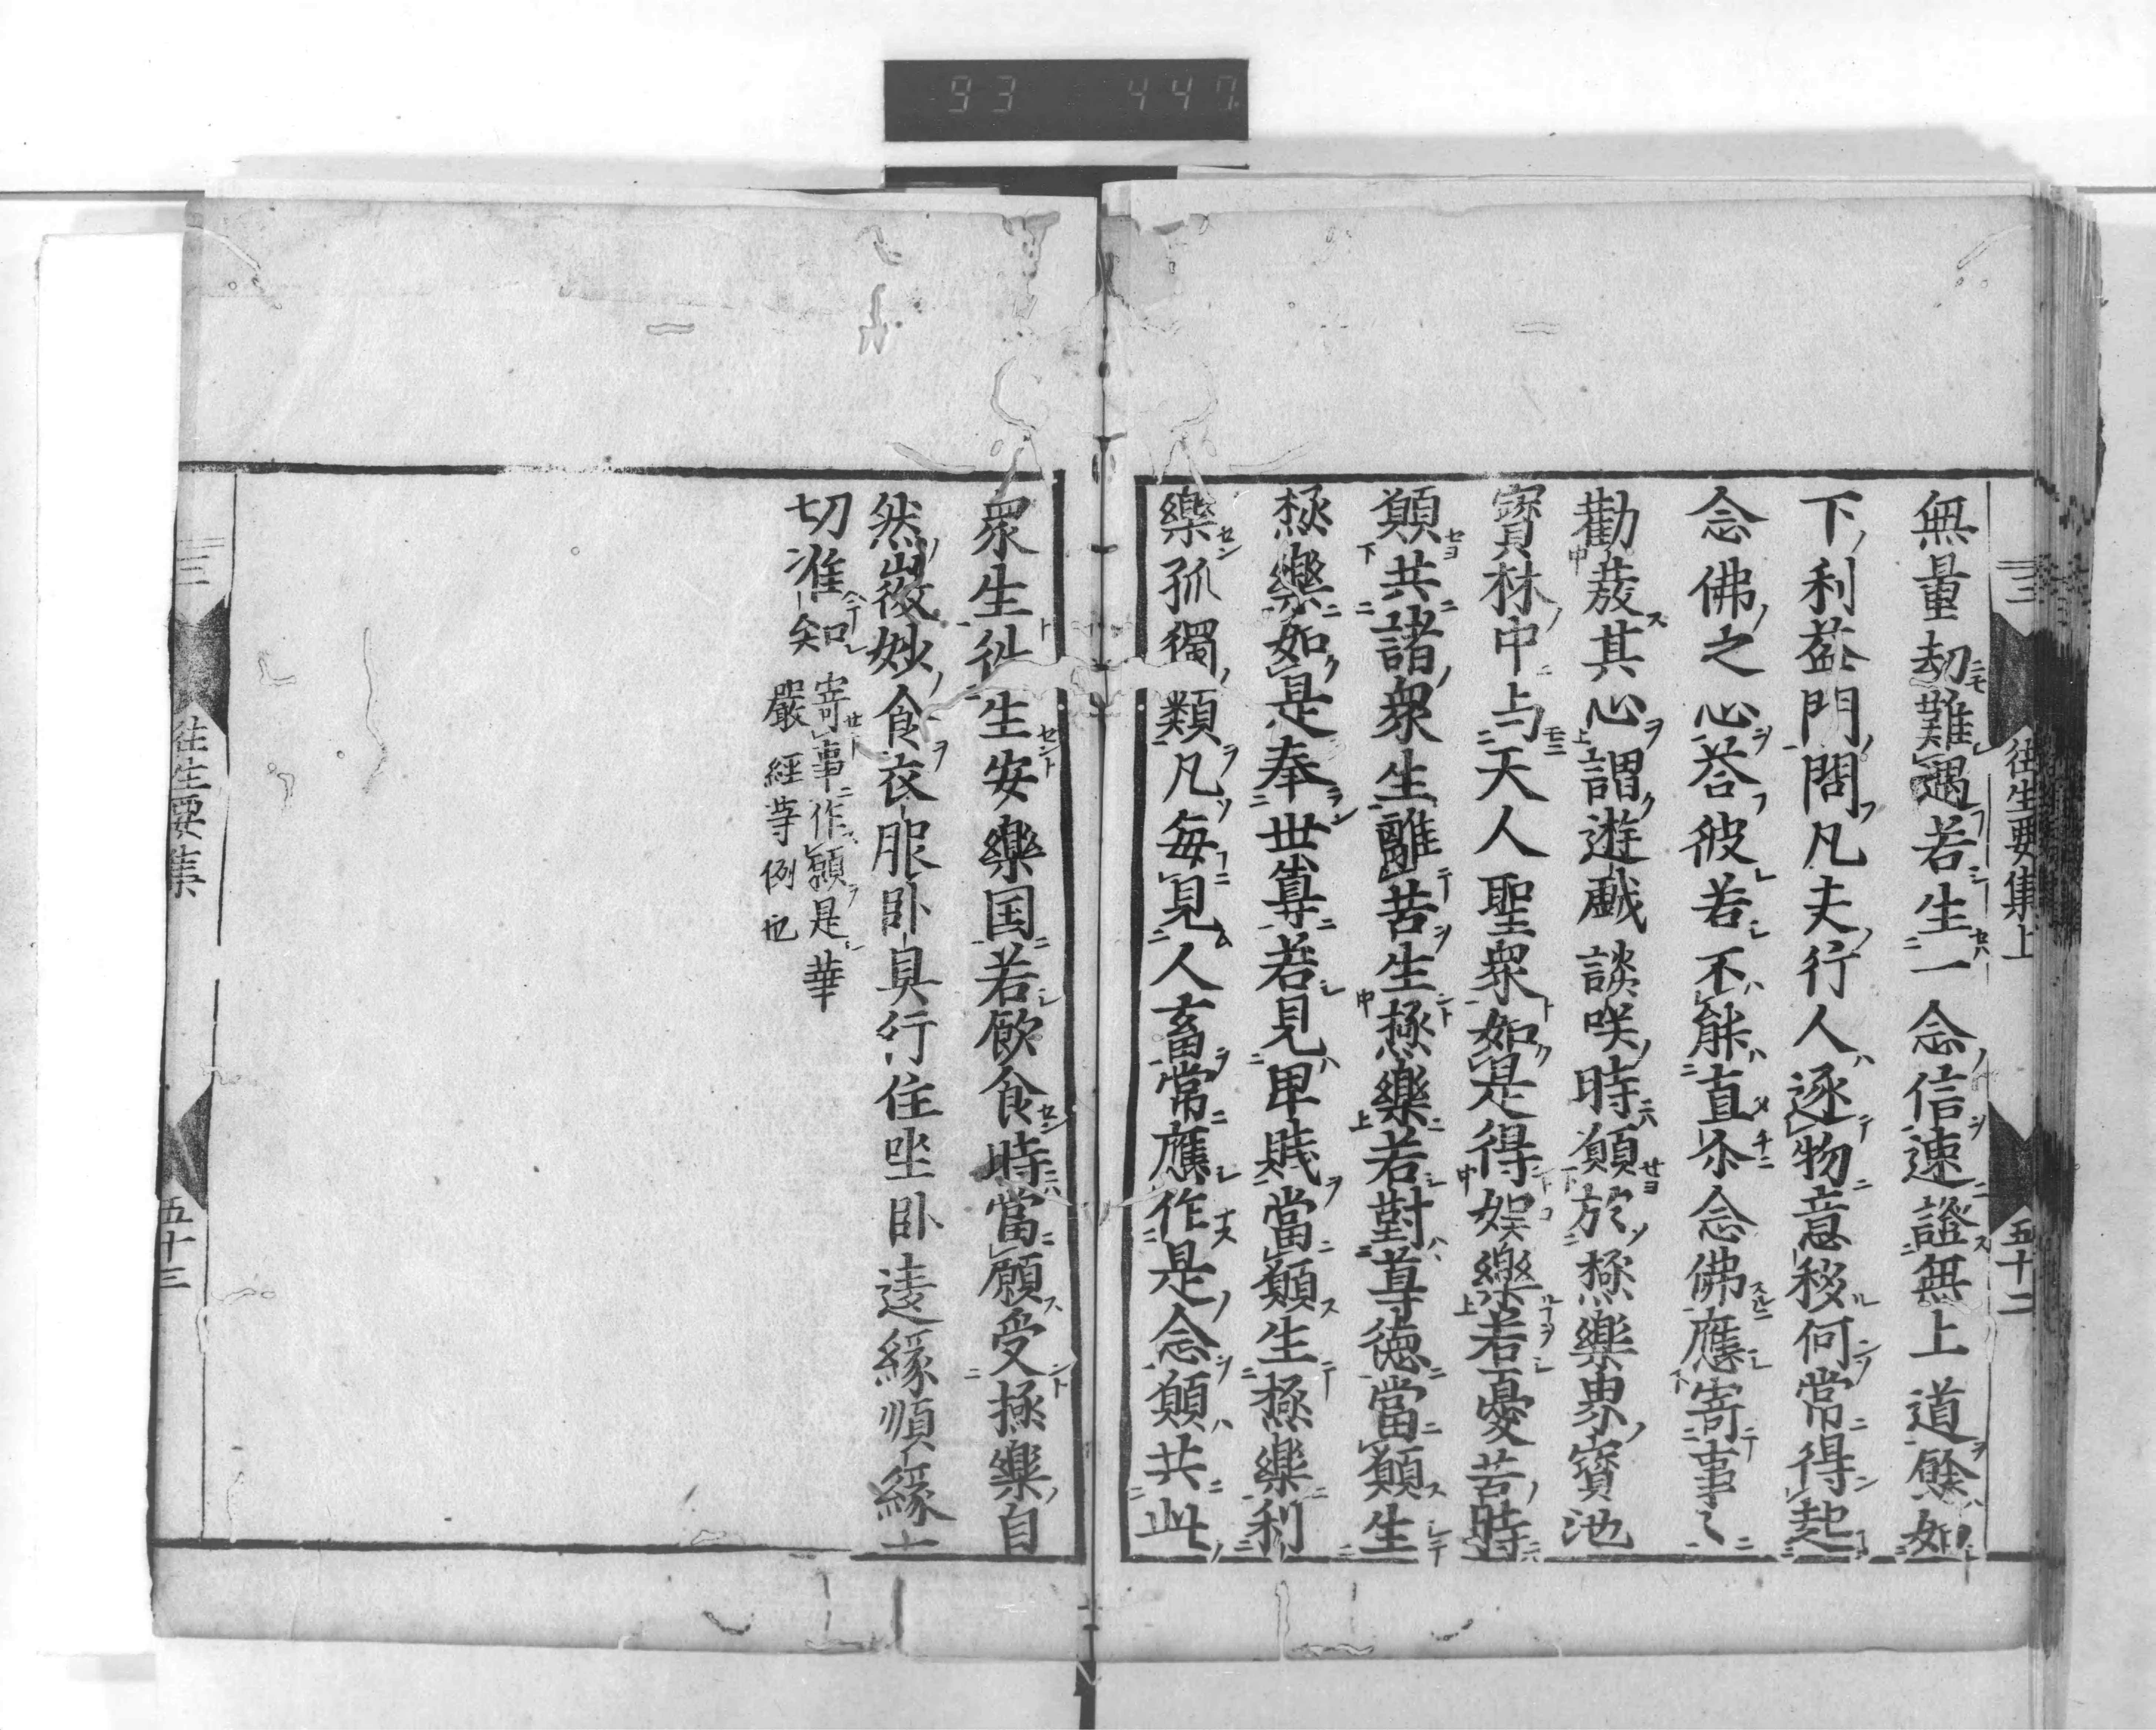 93 447
往生要集上 五十二
無量劫難遇若生一念信速證無上道餘如
下利益門問凡夫行人逐物意移何常得起
念佛之心荅彼若不能直尒念佛應寄事〻
勸發其心謂遊戯談咲時願於極樂界寳池
寳林中与天人聖衆如是得娯樂若憂苦時
願共諸衆生離苦生極樂若對尊德當願生
極樂如是奉世尊若見卑賤當願生極樂利
樂孤獨類凡每見人畜常應作是念願共此
衆生徃生安樂国若飲食時當願受極樂自
然微妙食衣服卧具行住坐卧逺緣順緣一
切准知 寄事作願是華
嚴經等例也
往生要集 五十三